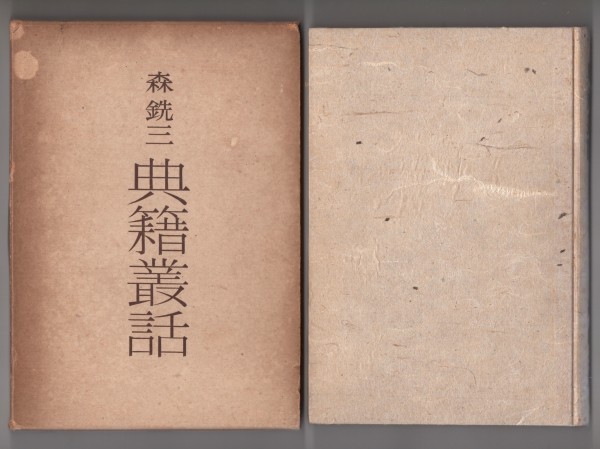 森銑三
典籍叢話